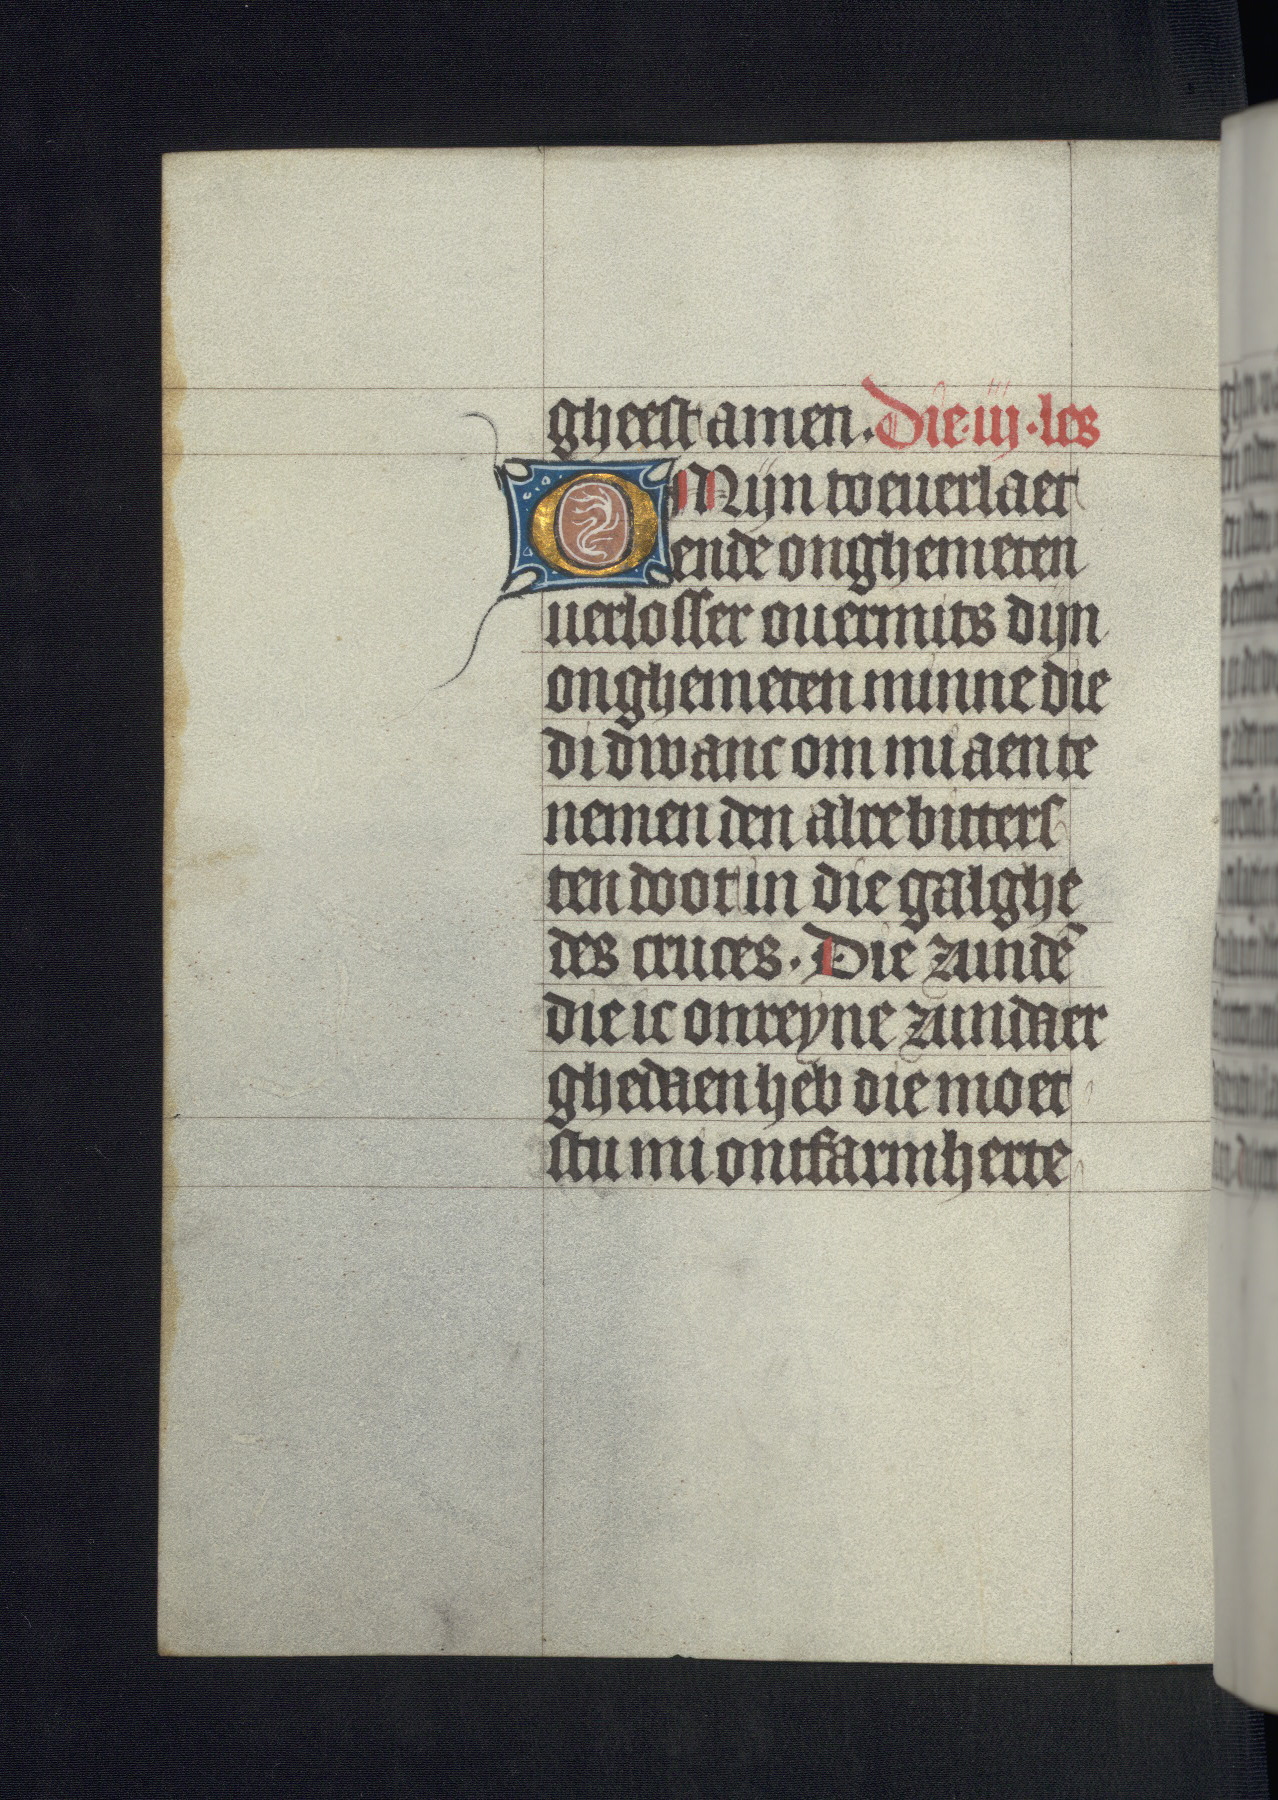 gheest amen. Die·iij·les
O Mijn toeuerlaet
ende onghemeten
uerlosser ouermits dijn
onghemeten minne die
di dwanc om mi aen te
nemen den alrebitters
ten doot in die galghe
des cruces. Die zundē
die ic onreyne zundaer
ghedaen heb die moet
stu mi ontfarmherte